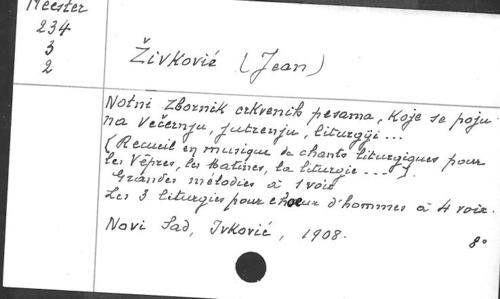 Meester
234
3
2
Živković (Jean)
Notni Zbornik crkvenih pesama, koje se poju
na večernju, jutrenju, liturgiji...
(Recueil en musique de chants liturgiques pour
les Vêpres, les Matines, la liturgie...).
Grandes mélodies à 1 voix
Les 3 liturgies pour choeur d'hommes à 4 voix.
Novi Sad, Ivković, 1908.
8°